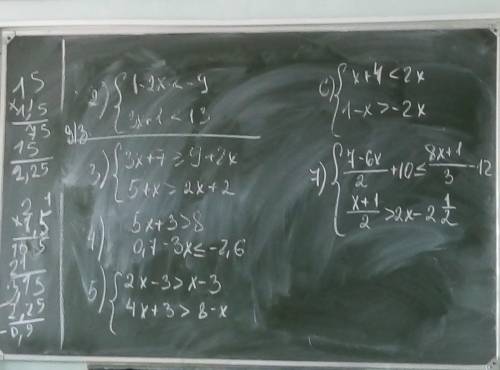 15
×1,5
75
15
2,25
2) { 1-2x<-9
3x+1<13
д/з
3) { 3x+7≥9+2x
5+x>2x+2
4) 5x+3>8
0,7-3x≤-2,6
5) { 2x-3>x-3
4x+3>8-x
6) { x+4<2x
1-x>-2x
7) { (7-6x)/2+10≤(8x+1)/3-12
(x+1)/2>2x-2 1/2